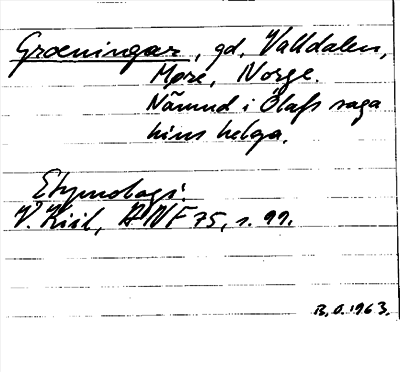 Grœningar, gd. Valldalen,
Møre, Norge.
Nämnd i Ólafs saga
hins helga.
Etymologi:
V. Kiil, ANF 75, s. 99.
B.O. 1963.